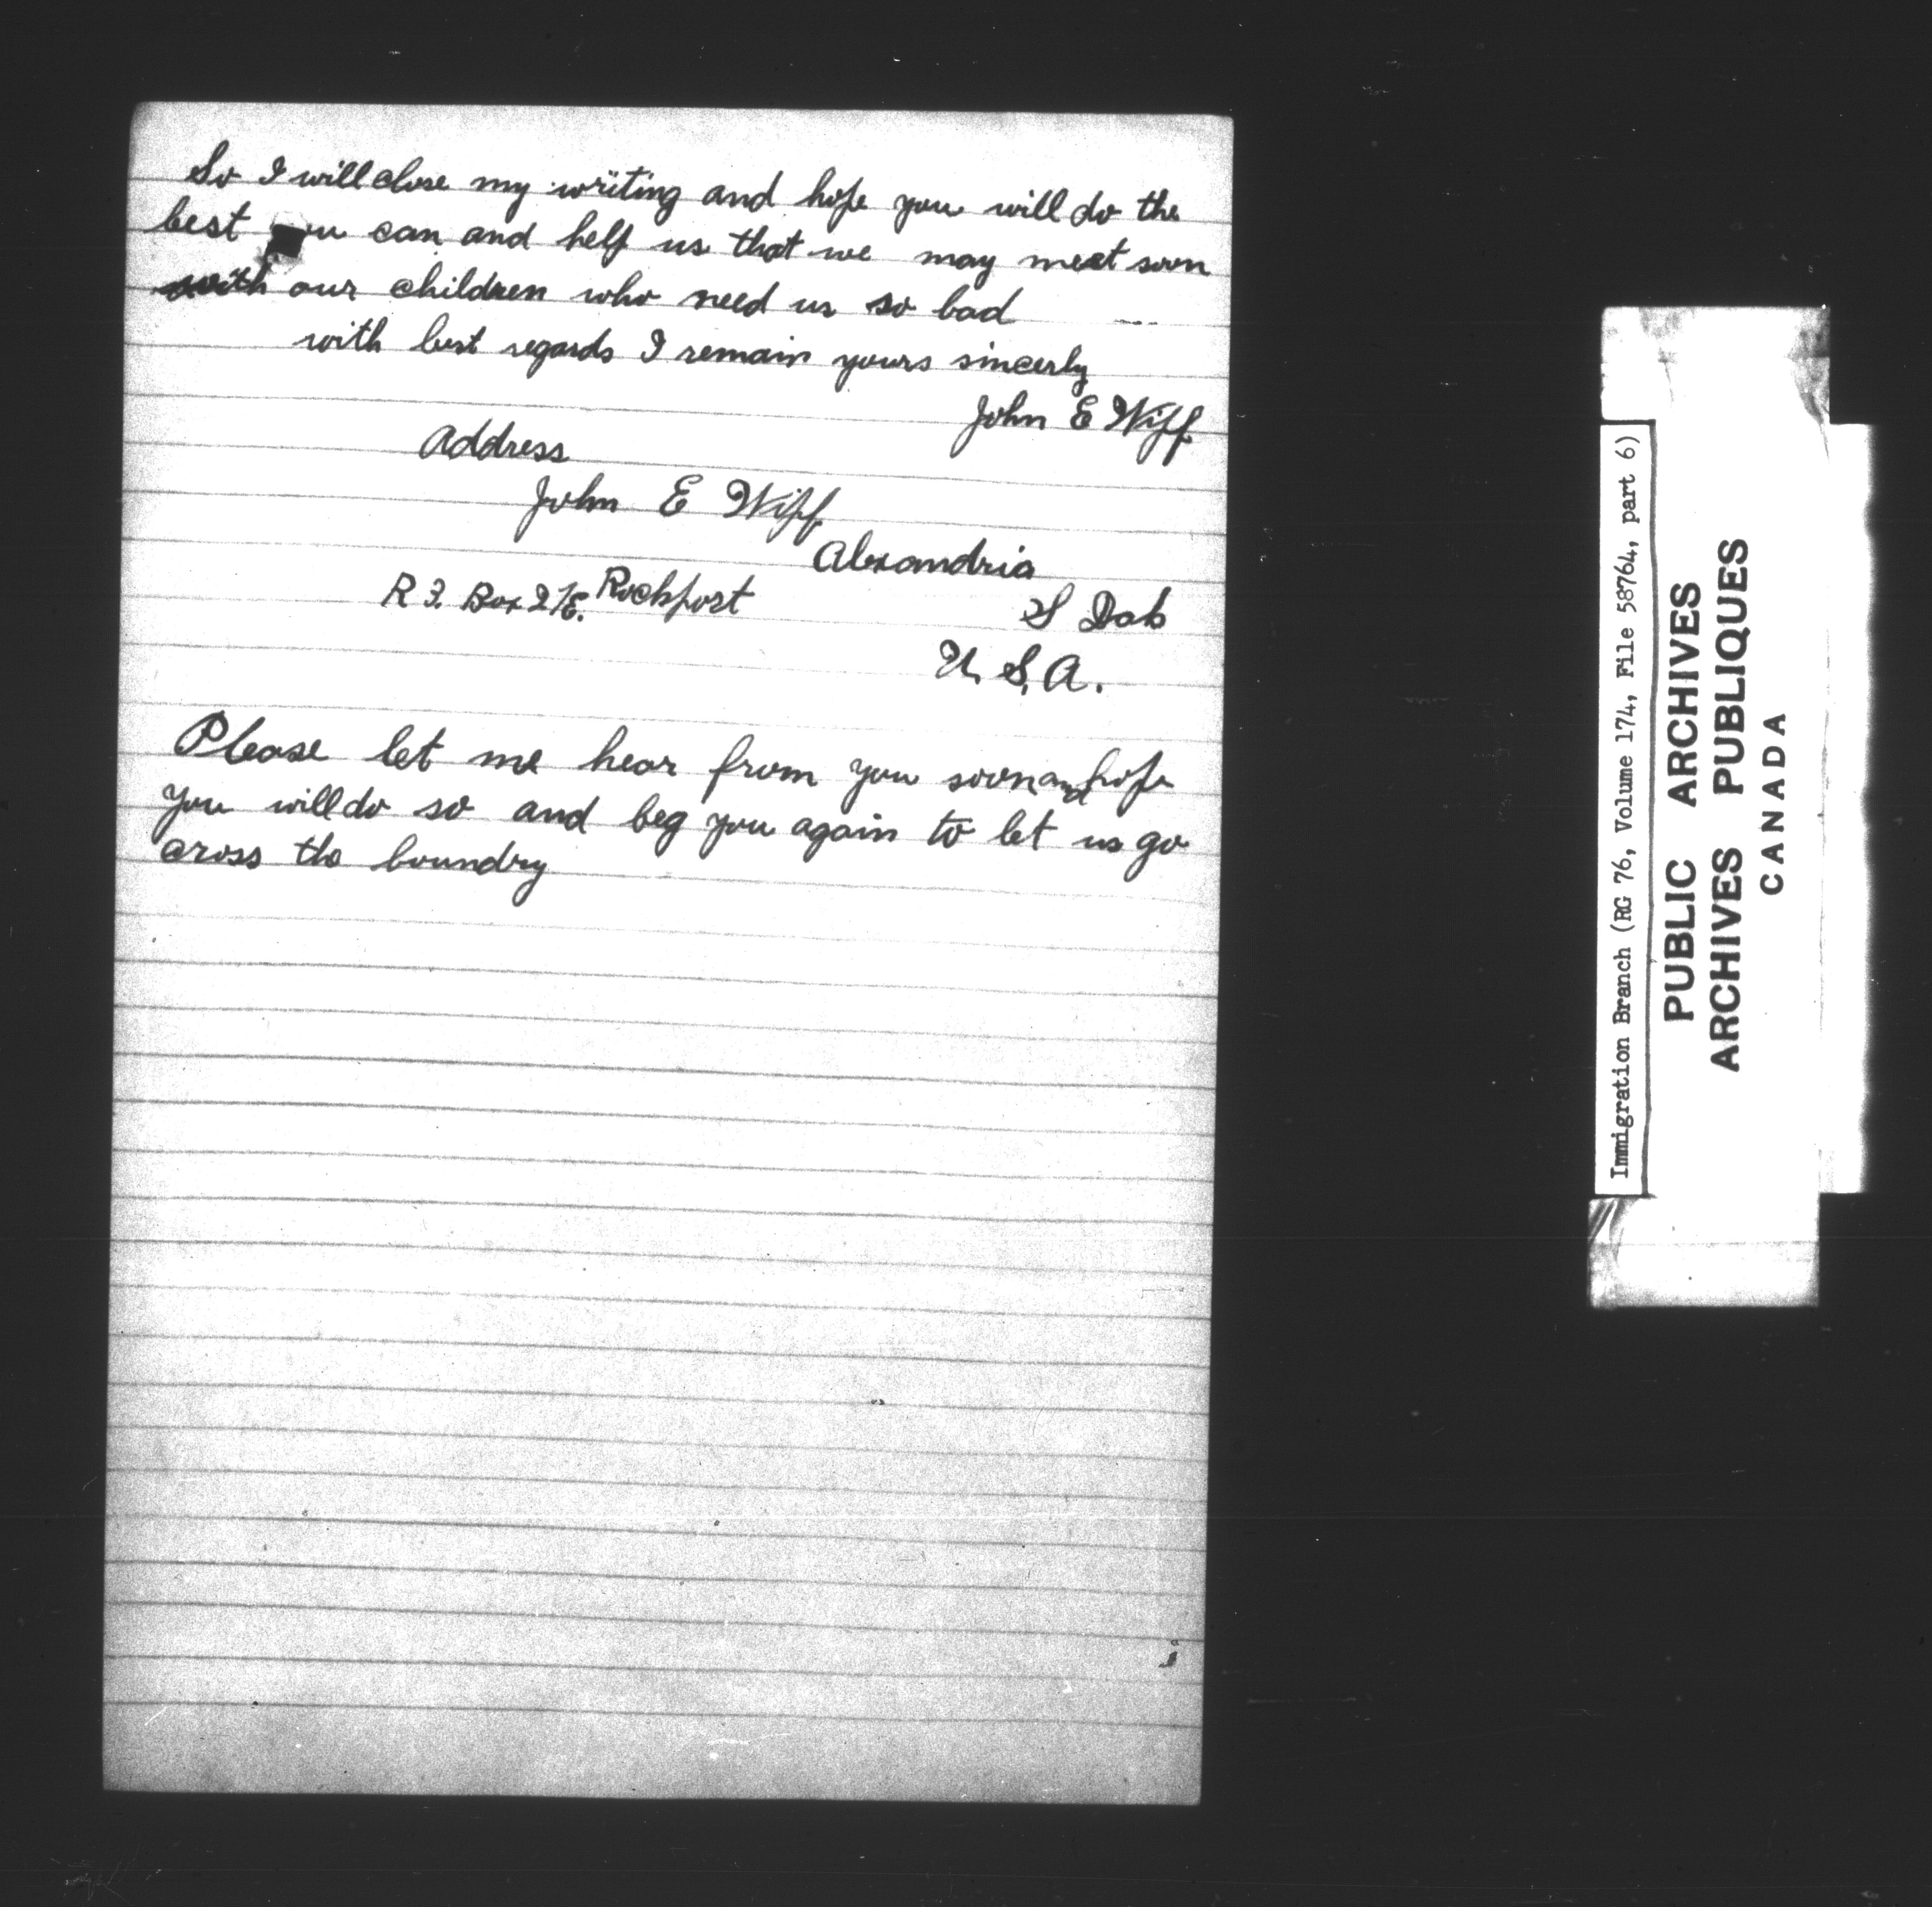 So I will close my writing and hope you will do the
best you can and help us that we may meet soon
with our children who need us so bad
with best regards I remain yours sincerly
John E Wipf
Address
John E Wipf
Alexandria
R 3. Box 2 Rockport
S Dak
U. S. A.
Please let me hear from you soon and hope
you will do so and beg you again to let us go
cross the boundry
Immigration Branch (RG 76, Volume 174, File 58764, part 6)
PUBLIC ARCHIVES
ARCHIVES PUBLIQUES
CANADA